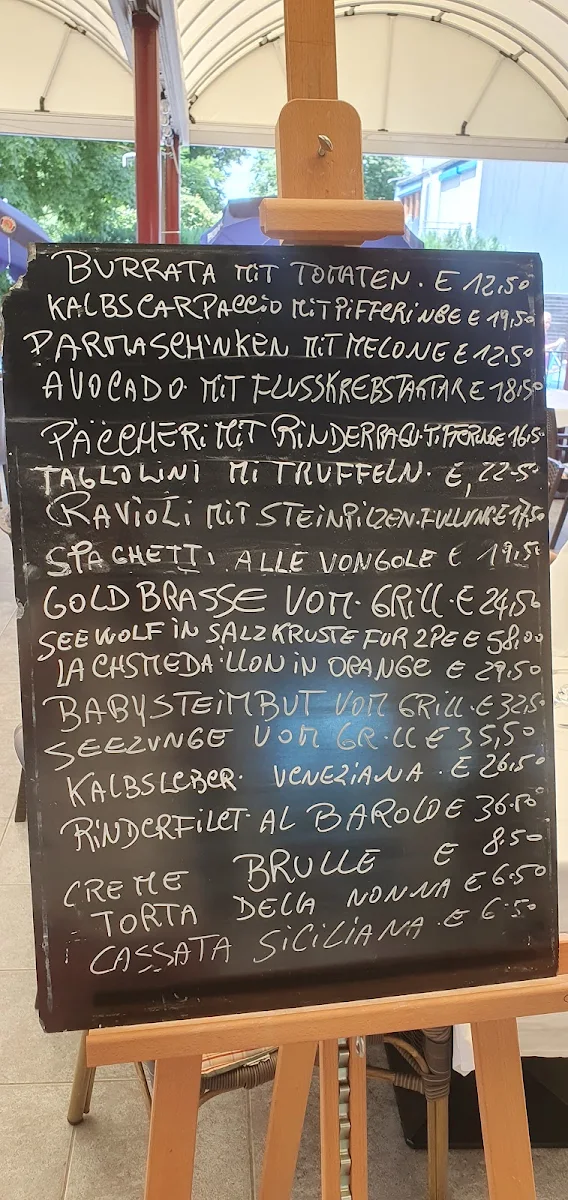 BURRATA MIT TOMATEN. E 12,50
KALBSCARPACCIO MIT PIFFERINGE E 19,50
PARMASCHINKEN MIT MELONE E 12.50
AVOCADO MIT FLUSSKREBSTARTAR E 18,50
PACCHERI MIT RINDERRAGU. PIFFERINGE 16,50
TAGLIOLINI MIT TRUFFELN. E, 22.50
RAVIOLI MIT STEINPILZEN.FULLUNG E 17,50
SPAGHETTI ALLE VONGOLE E 19,50
GOLD BRASSE VOM. GRILL.E 24,50
SEEWOLF IN SALZKRUSTE FUR 2PE E 58,00
LACHSMEDAILLON IN ORANGE E 29,50
BABYSTEIMBUT VOM GRILL.E 32,50
SEEZUNGE VOM GRILL E 35,50
KALBSLEBER. VENEZIANA . E 26,50
RINDERFILET. AL BAROLO E 36.50
CREME BRULLE E 8.50
TORTA DELLA NONNA E 6.50
CASSATA SICILIANA . E 6.50